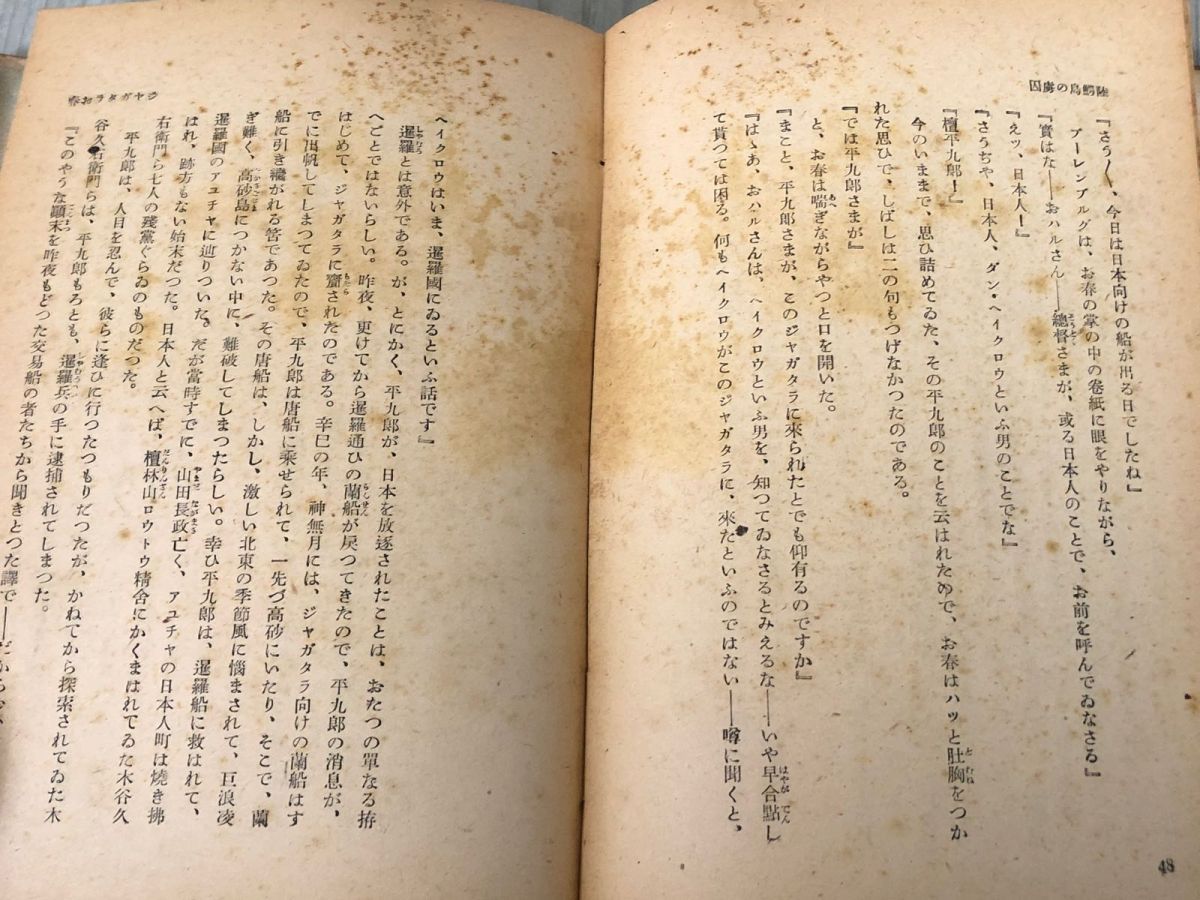 囚虜の島鰐陸
『さう〳〵、今日は日本向けの船が出る日でしたね』
ブーレンブルグは、お春の掌の中の卷紙に眼をやりながら、
『實はな――おハルさん――總督さまが、或る日本人のことで、お前を呼んでゐなさる』
『えッ、日本人！』
『さうぢや、日本人、ダン・ヘイクロウといふ男のことでな』
『檀平九郎！』
今のいままで、思ひ詰めてゐた、その平九郎のことを云はれたので、お春はハッと肚胸をつか
れた思ひで、しばしは二の句もつげなかつたのである。
『では平九郎さまが』
と、お春は喘ぎながらやつと口を開いた。
『まこと、平九郎さまが、このジャガタラに來られたとでも仰有るのですか』
『はゝあ、おハルさんは、ヘイクロウといふ男を、知つてゐなさるとみえるな――いや早合點し
て貰つては困る。何もヘイクロウがこのジャガタラに、來たといふのではない――噂に聞くと、
48
春おラタガヤジ
ヘイクロウはいま、暹羅國にゐるといふ話です』
暹羅とは意外である。が、とにかく、平九郎が、日本を放逐されたことは、おたつの單なる拵
へごとではないらしい。昨夜、更けてから暹羅通ひの蘭船が戻つてきたので、平九郎の消息が、
はじめて、ジャガタラに齎されたのである。辛巳の年、神無月には、ジャガタラ向けの蘭船はす
でに出帆してしまつてゐたので、平九郎は唐船に乘せられて、一先づ高砂にいたり、そこで、蘭
船に引き繼がれる筈であつた。その唐船は、しかし、激しい北東の季節風に惱まされて、巨浪凌
ぎ難く、高砂島につかない中に、難破してしまつたらしい。幸ひ平九郎は、暹羅船に救はれて、
暹羅國のアユチャに辿りついた。だが當時すでに、山田長政亡く、アユチャの日本人町は燒き拂
はれ、跡方もない始末だつた。日本人と云へば、檀林山ロウトウ精舍にかくまはれてゐた木谷久
右衞門ら七人の殘黨ぐらゐのものだつた。
平九郎は、人目を忍んで、彼らに逢ひに行つたつもりだつたが、かねてから探索されてゐた木
谷久右衞門らは、平九郎もろとも、暹羅兵の手に逮捕されてしまつた。
『このやうな顚末を昨夜もどつた交易船の者たちから聞きとつた譯で――だから